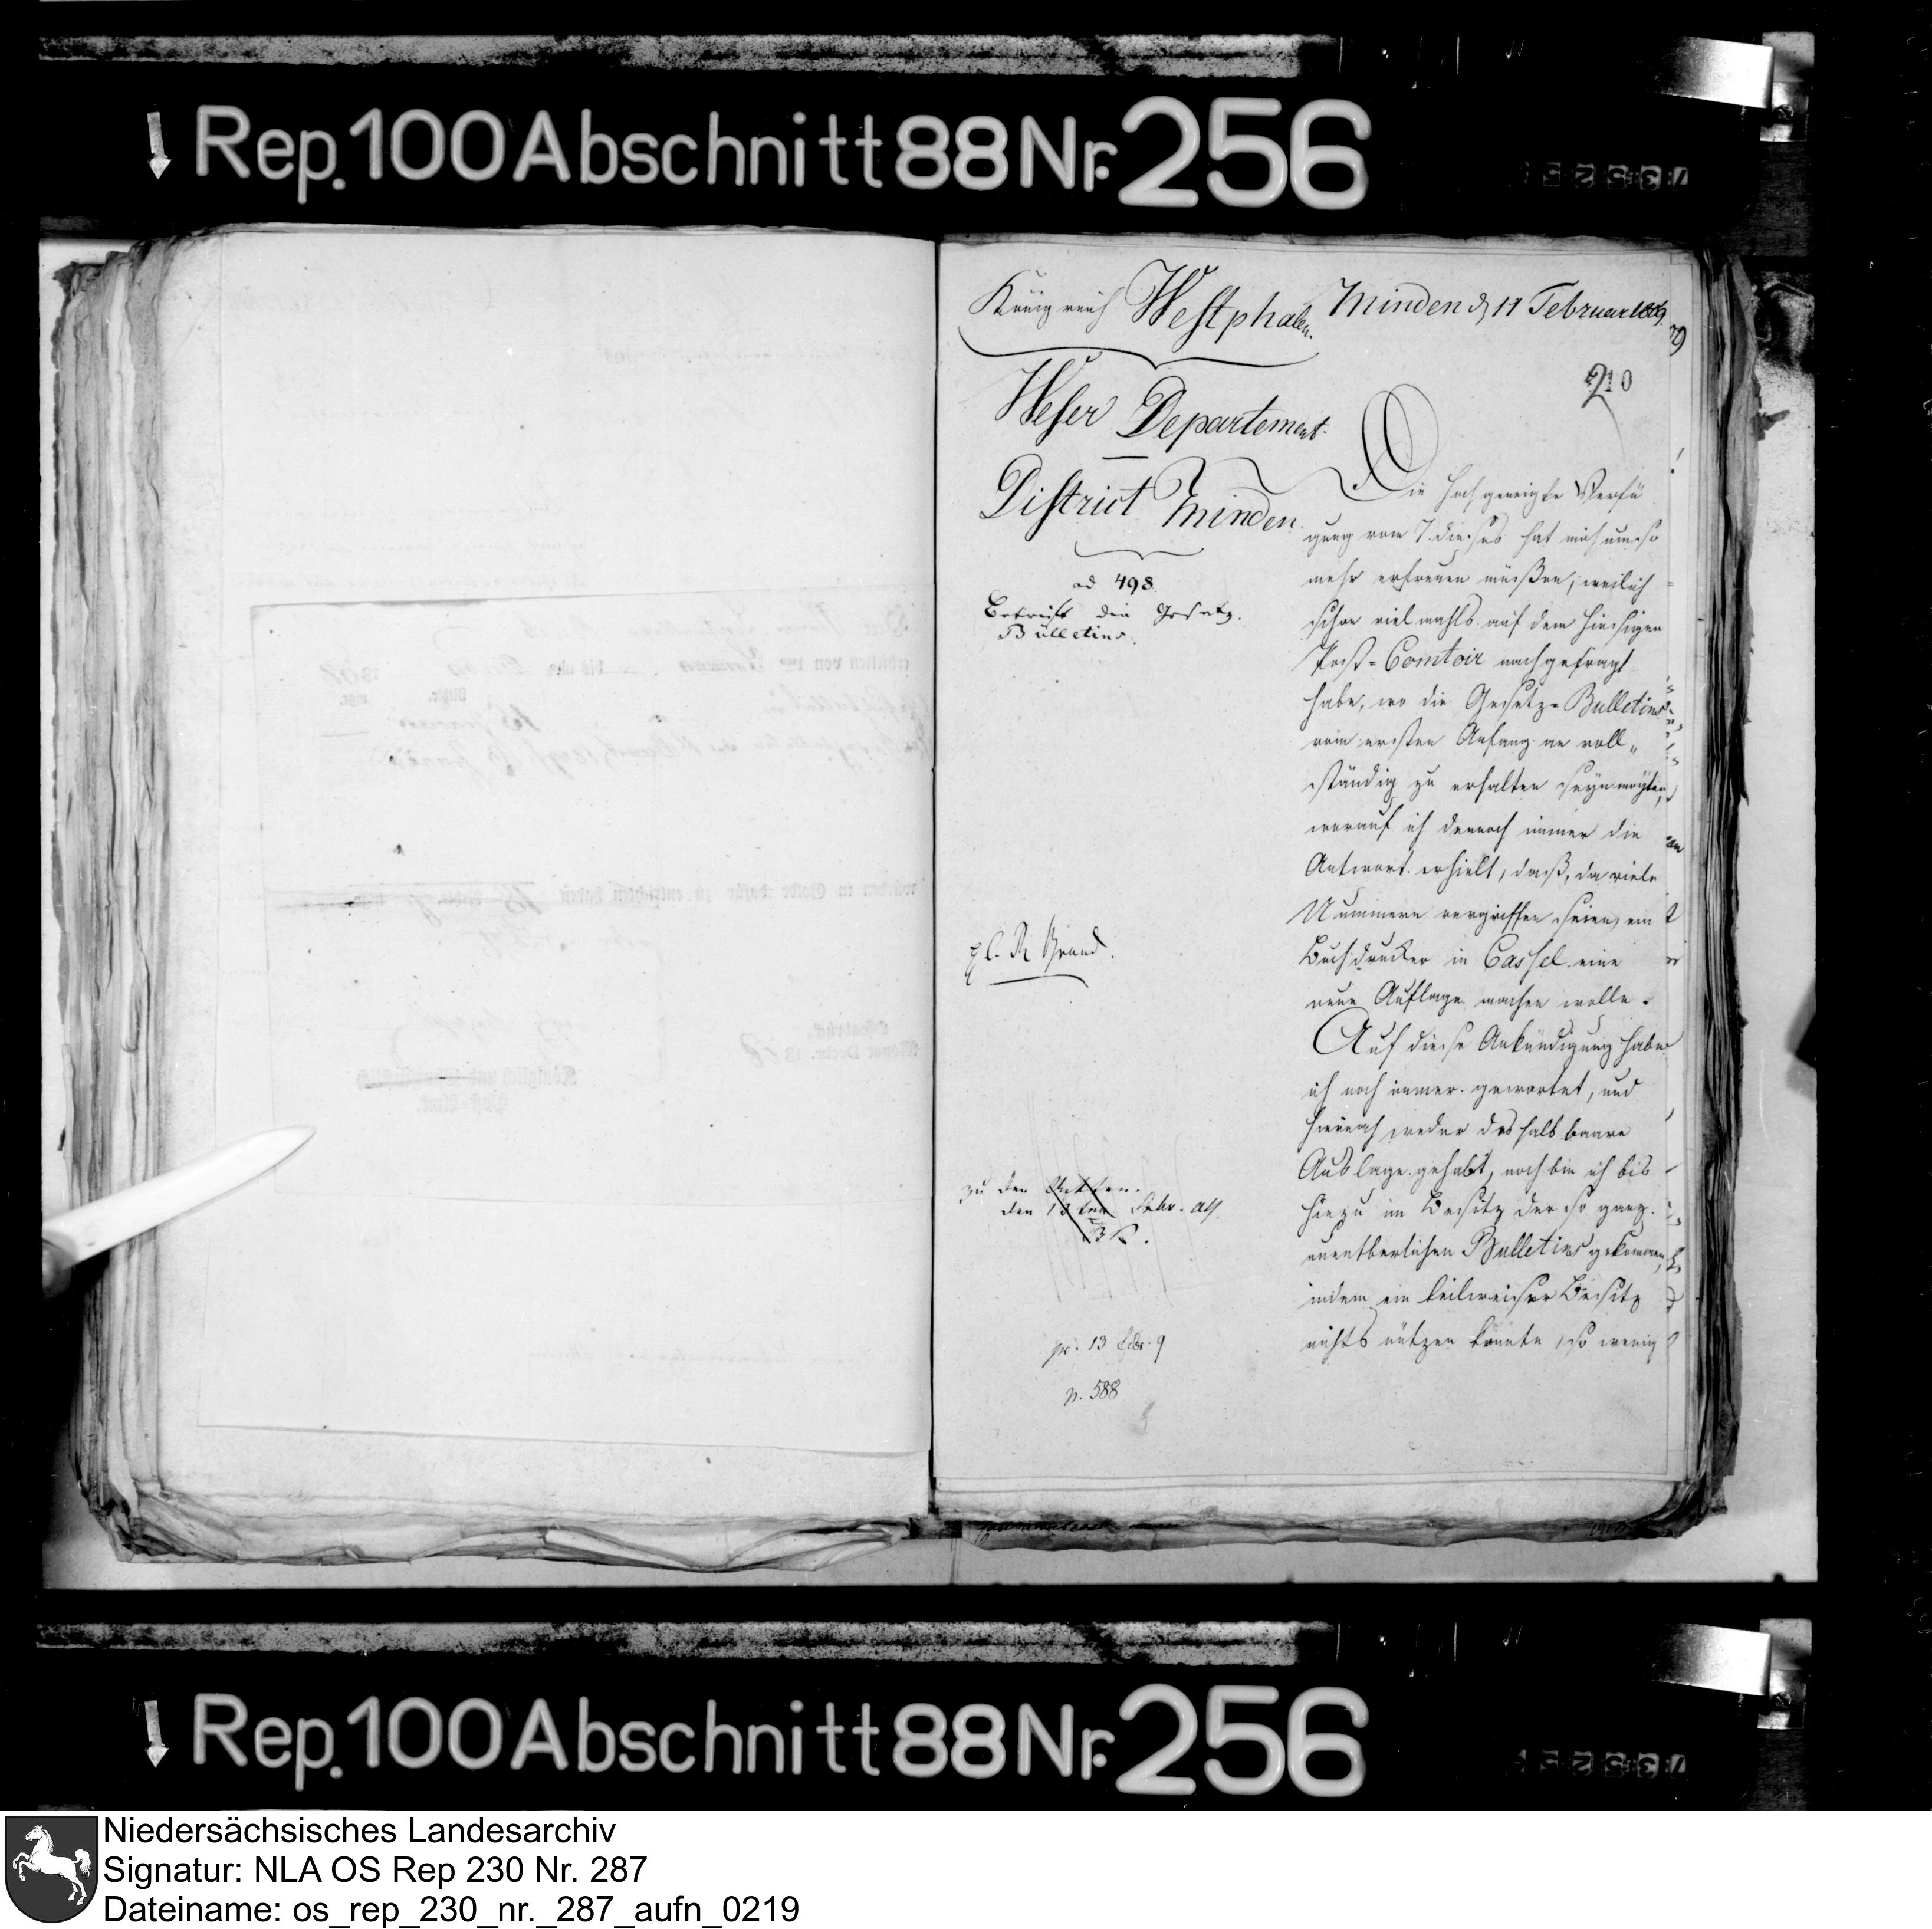 Rep. 100 Abschnitt 88 Nr. 256
Königreich Westphalen.
Minden d 11 Februar 1809.
210
Weser Departement
District Minden.
ad 498.
Betrift die Gesetz-
Bülletins.
Die hochgeneigte Verfü
gung vom 7. dieses hat mich umso
mehr erfreuen müßen, weil ich
schon vielmahls auf dem hiesigen
Post-Comtoir nachgefragt
habe, wo die Gesetz-Bulletins
vom ersten Anfang an voll„
ständig zu erhalten seyn mögten,
worauf ich dennoch immer die
Antwort erhielt, daß, da viele
Nummern vergriffen seien, ein
Buchdrucker in Cassel eine
neue Auflage machen wolle.
Auf diese Ankündigung habe
ich noch immer gewartet, und
hienach weder deshalb baare
Auslage gehabt, noch bin ich bis
hiezu im Besitz der so ganz
unentberlichen Bulletins gekommen,
indem ein teilweiser Besitz
nichts nützen konnte, so wenig
Brand.
zu den Akten.
den 13 ten Febr.
pr. 13 Febr. 9
n. 588
Rep. 100 Abschnitt 88 Nr. 256
Niedersächsisches Landesarchiv
Signatur: NLA OS Rep 230 Nr. 287
Dateiname: os_rep_230_nr._287_aufn_0219